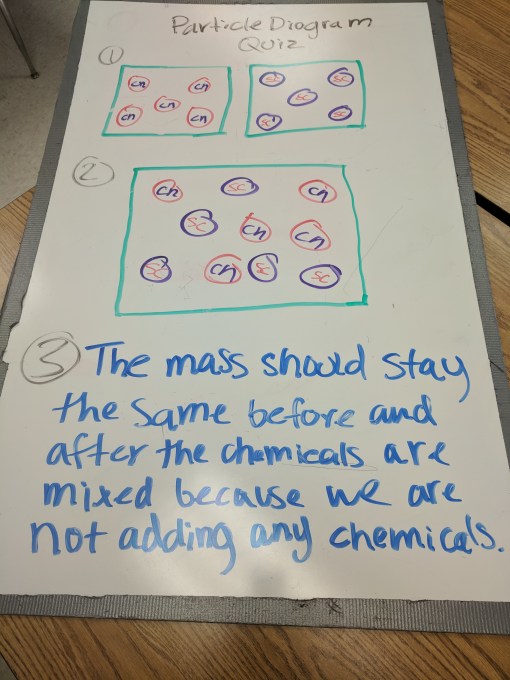 Particle Diagram
Quiz
1
cn cn sc sc
cn sc
cn cn sc sc
2
cn sc cn
sc cn cn
sc cn sc sc
3 The mass should stay
the same before and
after the chemicals are
mixed because we are
not adding any chemicals.